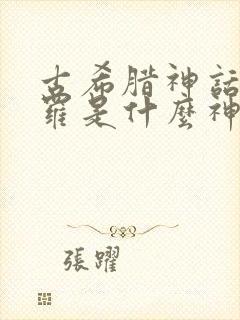 古希腊神話
羅是什麼神
張躍